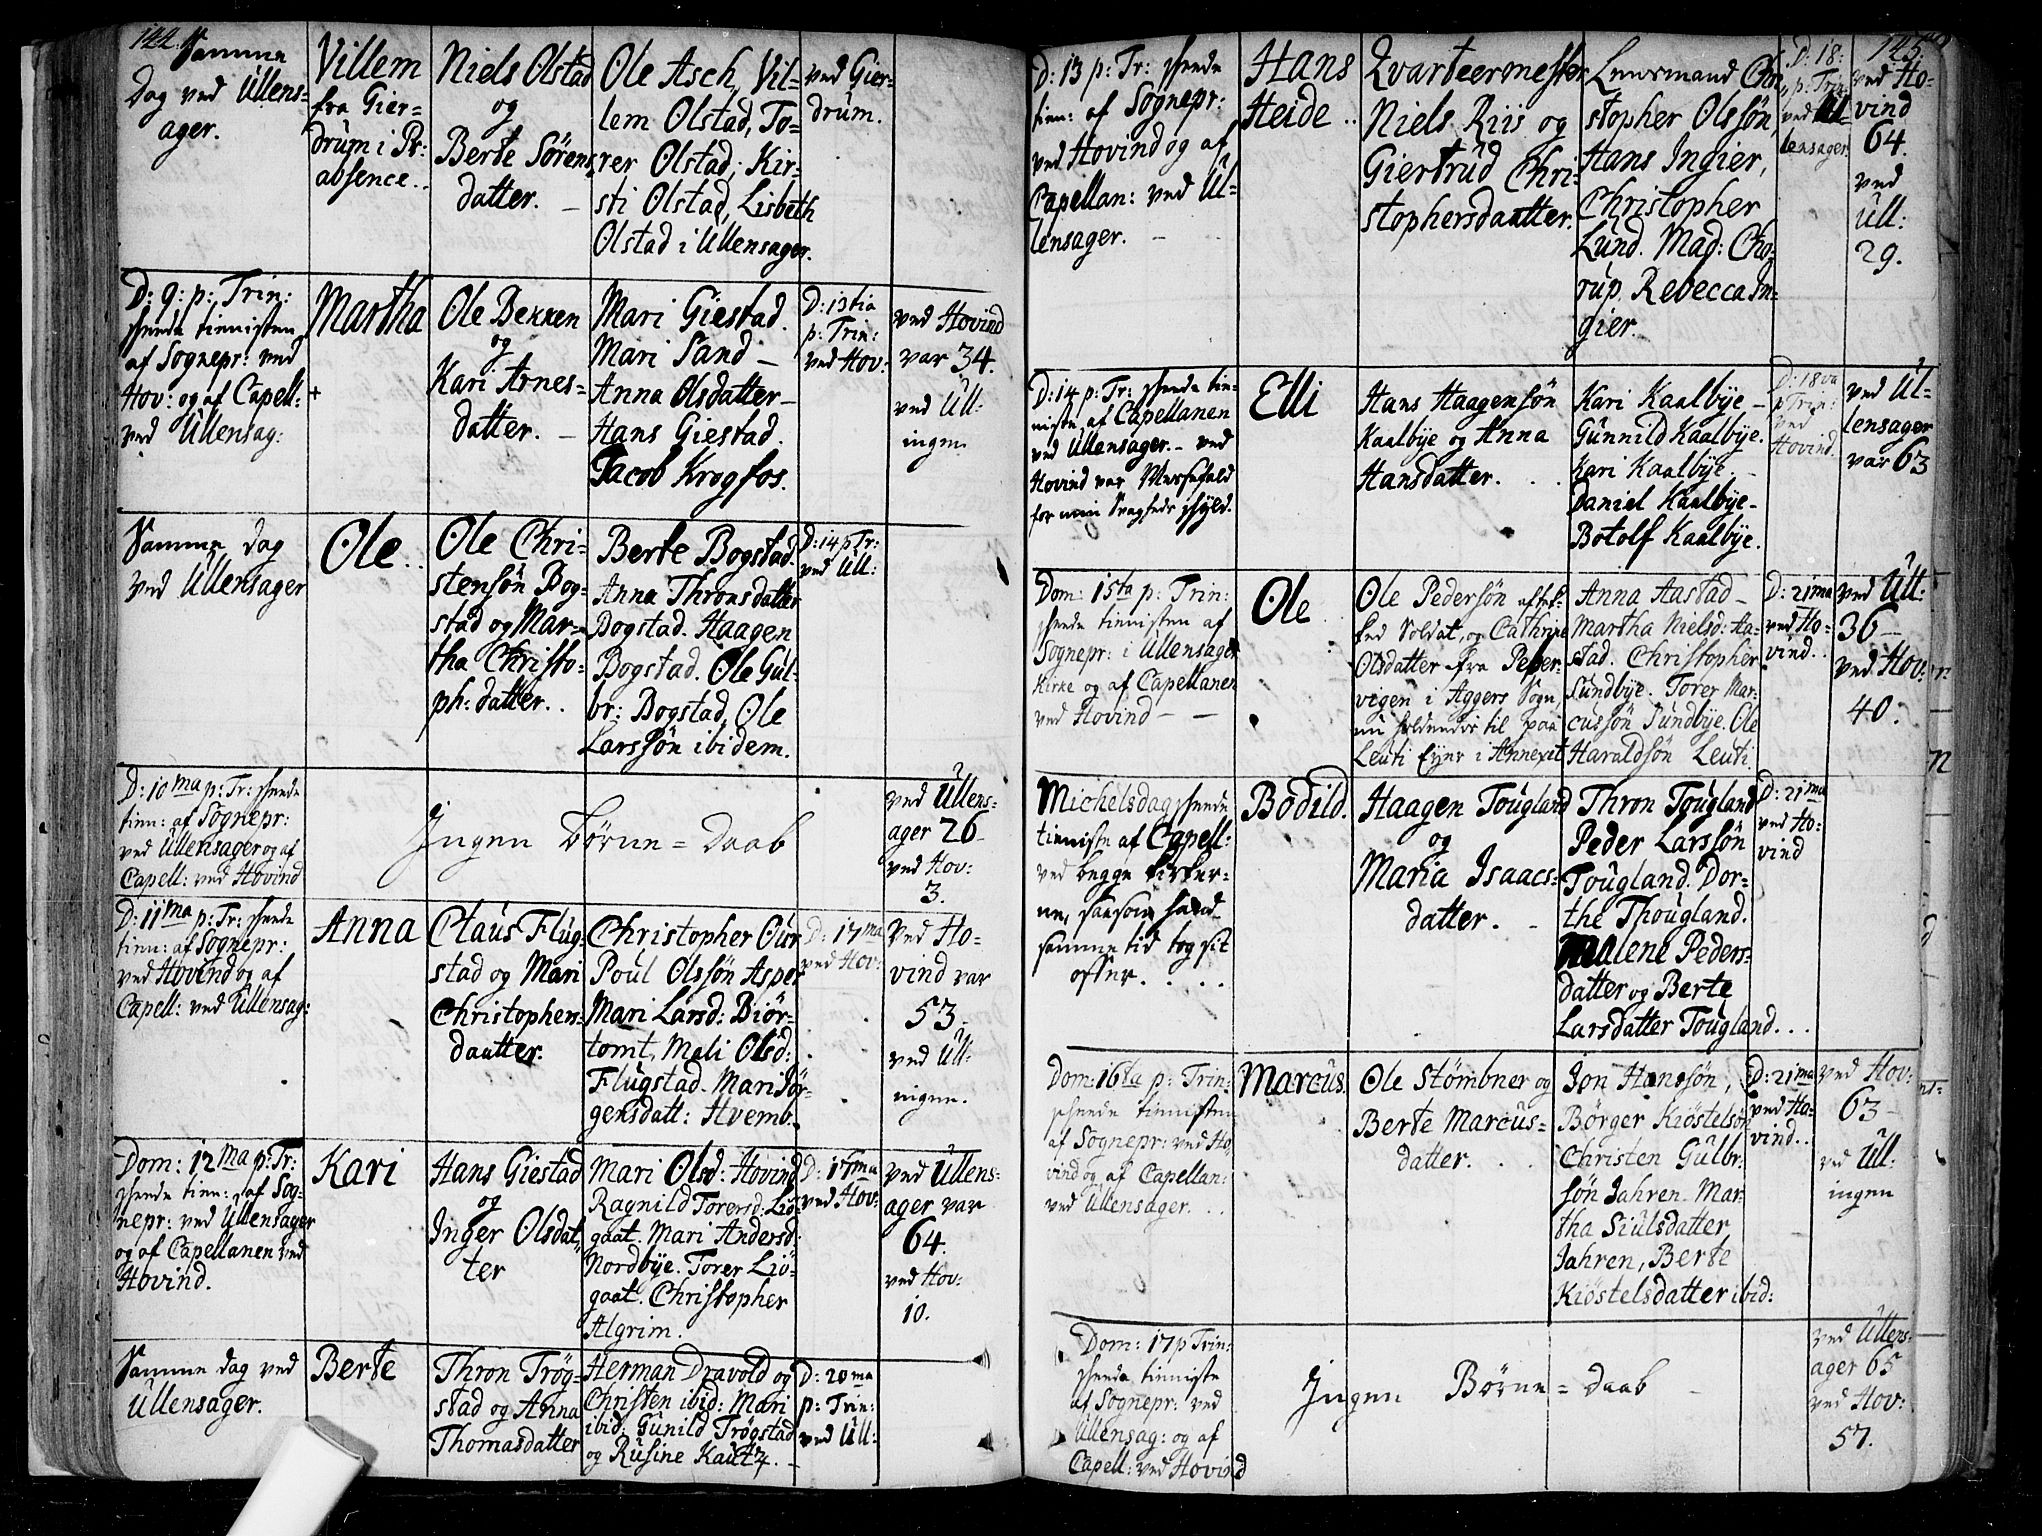 144.
Samme
Dag ved Ullens-
ager.
Villem
fra Gier-
drum i Pr:
absence..
Niels Olstad
og
Berte Sørens
datter. –
Ole Asch, Vil-
lem Olstad, To-
rer Olstad, Kir-
sti Olstad, Lisbeth
Olstad i Ullensager.
ved Gier-
drum.
D: 9: p: Trin:
skeede tienisten
af Sognepr: ved
Hov: og af Capell:
ved Ullensag:
Martha
+
Ole Bekken
og
Kari Arnes-
datter. –
Mari Giestad.
Mari Sand –
Anna Olsdatter –
Hans Giestad.
Jacob Krogfos.
D: 13tia
p: Trin:
ved Hov:
ved Hovind
var 34.
ved Ull:
ingen
Samme Dag
ved Ullensager
Ole..
Ole Chri-
stensøn Bog-
stad og Mar-
tha Christo-
ph: datter..
Berte Bogstad.
Anna Thronsdatter
Bogstad. Haagen
Bogstad. Ole Gul-
br: Bogstad, Ole
Larssøn ibidem.
D: 14 p Tr:
ved Ull:
D: 10ma p: Tr: skeede
tien: af Sognepr:
ved Ullensager og af
Capell: ved Hovind
Ingen Børne = Daab
ved Ullens-
ager 26
ved Hov:
3.
D: 11ma p: Tr: skeede
tien: af Sognepr:
ved Hovind og af
Capell: ved Ullensag:
Anna
Claus Flug-
stad og Mari
Christophers-
daatter.
Christopher Our
Poul Olssøn Asper
Mari Larsd: Biør-
tomt, Mali Olsd:
Flugstad. Mari Jør-
gensdatt: Hvemb.
D: 17ma
ved Hov:
Ved Ho-
vind var
53
ved Ull:
ingen.
Dom: 12ma p: Tr:
skeede tien: af Sog-
nepr: ved Ullensager
og af Capellanen ved
Hovind.
Kari
Hans Giestad
og
Inger Olsdat-
ter
Mari Olsd: Hovind
Ragnild Torersd: Liø-
gaat. Mari Andersd:
Nordbye. Torer Liø-
gaat. Christopher
Algrim.
D: 17ma
ved Hov:
ved Ullens-
ager var
64.
ved Hov:
10.
Samme dag ved
Ullensager.
Berte
Thron Trøg-
stad og Anna
Thomasdatter
Herman Dravold og
Christen ibid: Mari
ibid: Gunild Trøgstad
og Rusine Kautz. –
D: 20ma
p: Trin:
ved Ull:
145
D: 13 p: Tr: skeede
tien: af Sognepr:
ved Hovind og af
Capellan: ved Ul-
lensager. –
Hans
Heide..
Qvarteermester
Niels Riis og
Giertrud Chri-
stophersdaatter.
Lensmand Chri-
stopher Olssøn,
Hans Ingier,
Christopher
Lund. Mad: Cho-
rup. Rebecca In-
gier.
D: 18:
p: Trin:
ved Ul-
lensager.
ved Ho-
vind
64.
ved
Ull:
29.
D: 14 p: Tr: skeede tie-
niste af Capellanen
ved Ullensager. – ved
Hovind var Messefald
for min Svagheds skyld.
Elli
Hans Haagensøn
Kaalbye og Anna
Hansdatter. . .
Kari Kaalbye –
Gunnild Kaalbye.
Kari Kaalbye. –
Daniel Kaalbye –
Botolf Kaalbye.
D: 18va
p Trin:
ved
Hovind.
ved Ul-
lensager
var 63
Dom: 15ta p: Trin:
skeede tienisten af
Sognepr: i Ullensager
Kirke og af Capellanen
ved Hovind – –
Ole
Ole Pedersøn aftak-
ked Soldat, og Cathrine
Olsdatter fra Peper-
vigen i Aggers Sogn,
nu holdendes til paa
Leuti Eyer i Annexet
Anna Aastad –
Martha Nielsd: Aa-
stad. Christopher
Sundbye. Torer Mar-
cussøn Sundbye. Ole
Haraldsøn Leuti.
D: 21ma
ved Ho-
vind..
ved Ull:
36 –
ved Hov:
40.
Michelsdag skeede
tieniste af Capell:
ved begge Kirker-
ne, saasom hand
samme tid tog sit
offer. . . . .
Bodild.
Haagen Tougland
og
Maria Isaacs-
datter. –
Thron Tougland
Peder Larssøn
Tougland. Dor-
the Thougland.
Malene Peders-
datter og Berte
Larsdatter Tougland...
D: 21ma
ved Ho-
vind
Dom: 16ta p: Trin:
skeede tienisten
af Sognepr: ved Ho-
vind og af Capellan:
ved Ullensager. . .
Marcus.
Ole Stømbner og
Berte Marcus-
datter. . .
Jon Hanssøn,
Børger Kiøstelsøn
Christen Gulbr:
søn Jahren. Mar-
tha Siulsdatter
Jahren, Berte
Kiøstelsdatter ibid:
D: 21ma
ved Ho-
vind..
ved Hov:
63 –
ved Ull:
ingen
Dom: 17 p Trin:
skeede tieniste
af Sognepr: ved
Ullensag: og af
Capell: ved Hovind
Ingen Børne = Daab –
ved Ullens-
ager 65
ved Hov:
57.